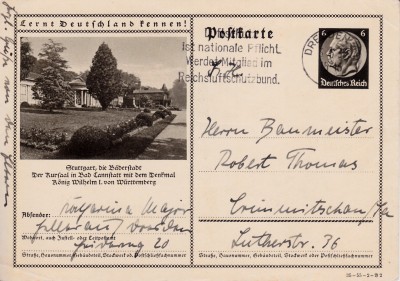 Lernt Deutschland kennen!
Postkarte
ist nationale Pflicht.
Werdet Mitglied im
Reichsluftschutzbund.
DRESDEN
6 6
Deutsches Reich
Stuttgart, die Bäderstadt
Der Kursaal in Bad Cannstatt mit dem Denkmal
König Wilhelm I. von Württemberg
Absender:
Katharina Major
Dresden
Wohnort, auch Zustell- oder Leitpostamt
20
Straße, Hausnummer, Gebäudeteil, Stockwerk od. Postschließfachnummer
Herrn Baumeister
Robert Thomas
Crimmitschau/Sa
Lutherstr. 36
Straße, Hausnummer, Gebäudeteil, Stockwerk oder Postschließfachnummer